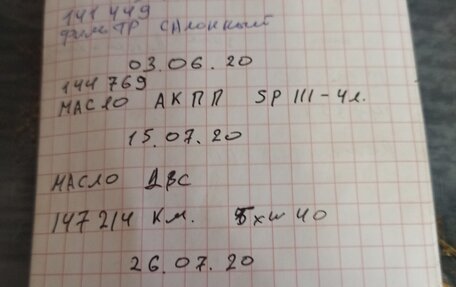 141 449
фильтр салонный
03.06.20
144 769
МАСЛО АКПП SP III-4л.
15.07.20
МАСЛО ДВС
147 214 КМ. 5xw 40
26.07.20